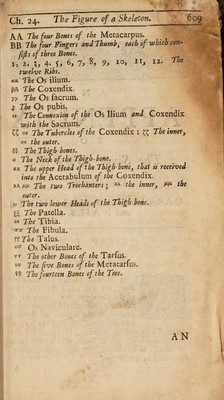 Ch. 24. The Figure of a Skeleton. 609
AA The four Bones of the Metacarpus.
BB The four Fingers and Thumb, each of which con-
sists of three Bones.
1, 2, 3, 4, 5, 6, 7, 8, 9, 10, 11, 12. The
twelve Ribs.
αα The Os ilium.
ββ The Coxendix.
γγ The Os sacrum.
δ The Os pubis,
εε The Connexion of the Os Ilium and Coxendix
with the Sacrum.
ζζ ηη The Tubercles of the Coxendix : ζζ The inner,
ηη the outer.
θθ The Thigh-bones.
ιι The Neck of the Thigh-bone.
κκ The upper Head of the Thigh-bone, that is received
into the Acetabulum of the Coxendix.
λλ μμ The two Trochanters; λλ the inner, μμ the
outer.
νν The two lower Heads of the Thigh-bone.
ξξ The Patella.
οο The Tibia.
ππ The Fibula.
The Talus.
Os Naviculare.
The other Bones of the Tarsus.
The five Bones of the Metatarsus.
The fourteen Bones of the Toes.
AN